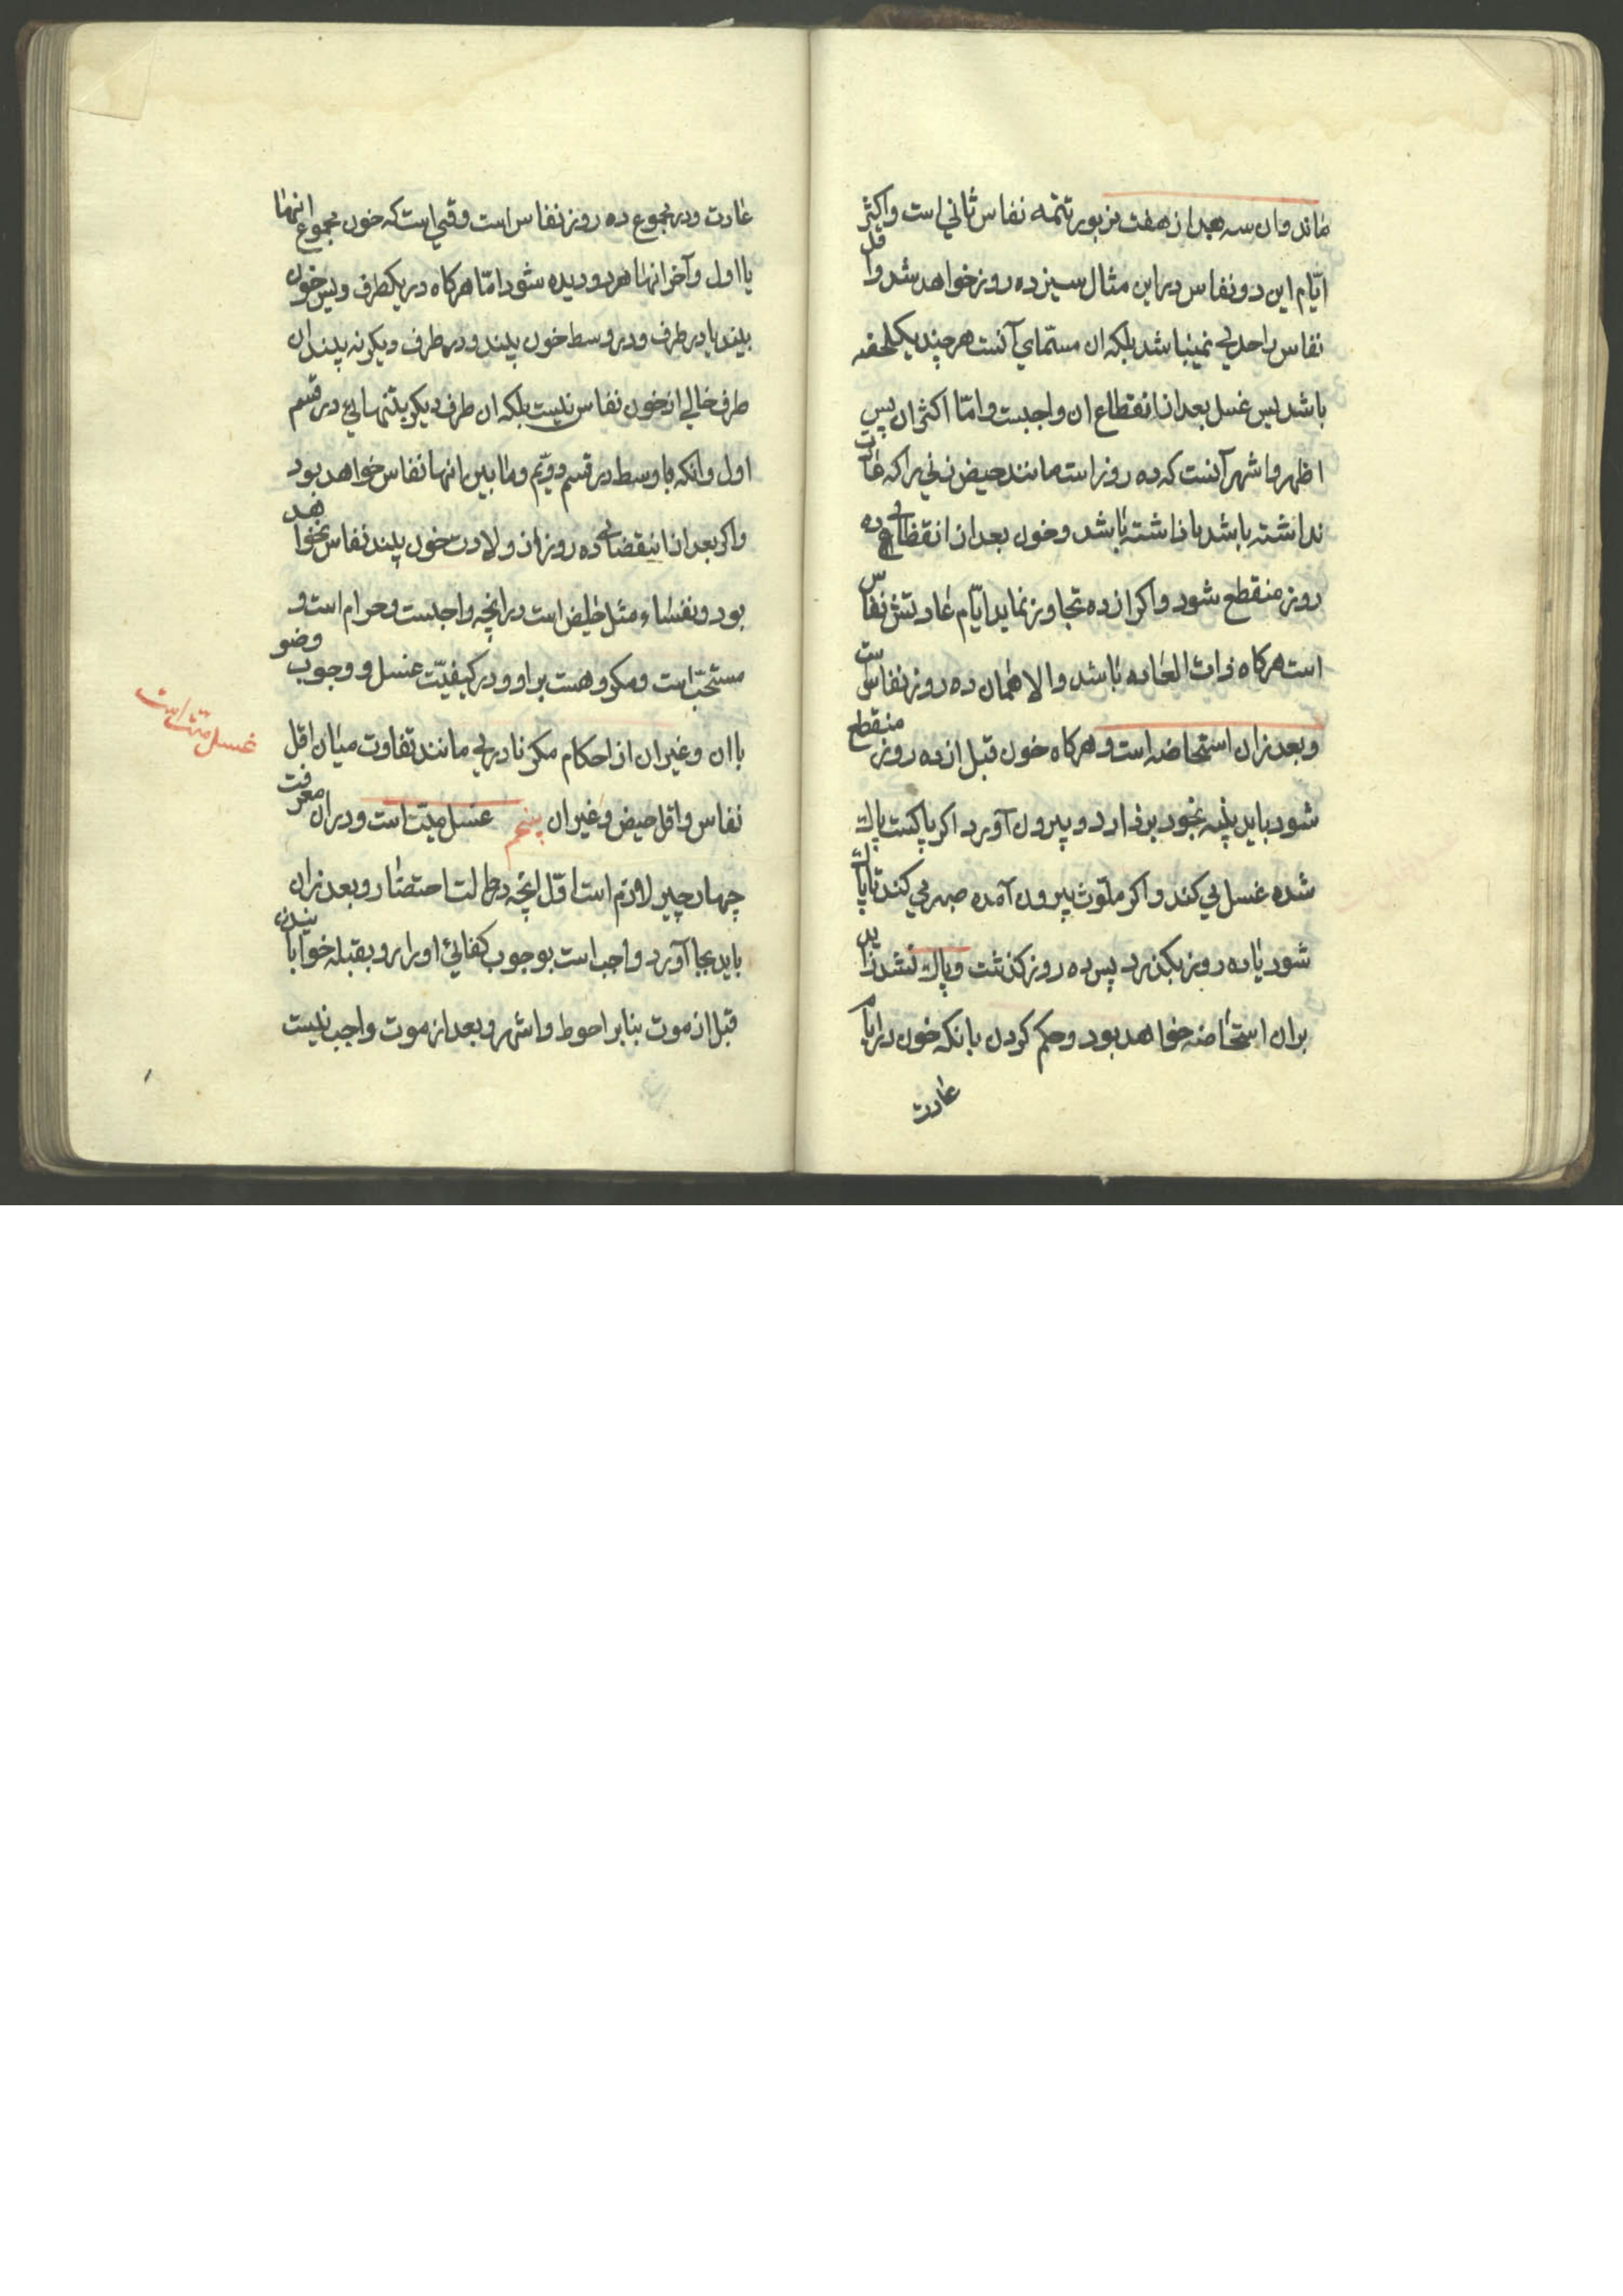 ماند و ان سه بعد از هفت مزبور تتمه نفاس ثانی است و اکثر
ایّام این دو نفاس در این مثال سیزده روز خواهد شد و اقل
نفاس را حدی نمیباشد بلکه ان مسمّای آنست هر چند یکلحظه
باشد پس غسل بعد از انقطاع ان واجبست و امّا اکثر ان پس
اظهر و اشهر آنست که ده روز است مانند حیض زنی را که عادت
نداشته باشد یا داشته باشد و خون بعد از انقضای ده
روز منقطع شود و اکر از ده تجاوز نماید ایّام عادتش نفاس
است هرکاه ذات العاده باشد و الا همان ده روز نفاس است
و بعد زان استحاضه است و هرکاه خون قبل از ده روز منقطع
شود باید پنبه بخود بردارد و بیرون آورد اکر پاکست پاک
شده غسل می کند و اکر ملوّث بیرون آمده صبر می کند تا پاک
شود یا ده روز بکذرد پس ده روز کذشت و پاک نشد زاید
بران استحاضه خواهد بود و حکم کردن بانکه خون در ایام
عادت
عادت و در مجموع ده روز نفاس است وقتی است که خون مجموع انها
یا اول و آخر انها هر دو دیده شود امّا هرکاه در یکطرف و بس خون
بیند یا در طرف و در وسط خون بیند و در طرف دیکر نه بیند ان
طرف خالی از خون نفاس نیست بلکه ان طرف دیکر بتنهایی در قسم
اول و انکه با وسط در قسم دویّم و ما بین انها نفاس خواهد بود
و اکر بعد از انقضای ده روز از ولادت خون بیند نفاس نخواهد
بود و نفساء مثل حایض است در انچه واجبست و حرام است و
مستحبّ است و مکروهست بر او و در کیفیّت غسل و وجوب وضو
با ان و غیر ان از احکام مکر نادری مانند تفاوت میان اقل
نفاس و اقل حیض و غیر ان پنجم غسل میّت است و در ان معرفت
چهار چیز لازم است اوّل انچه در حالت احتضار و بعد زان
باید بجا آورد و واجب است بوجوب کفائی او را رو بقبله خوابانیدن
قبل از موت بنابر احوط و اشهر و بعد از موت واجب نیست
غسل میّت است